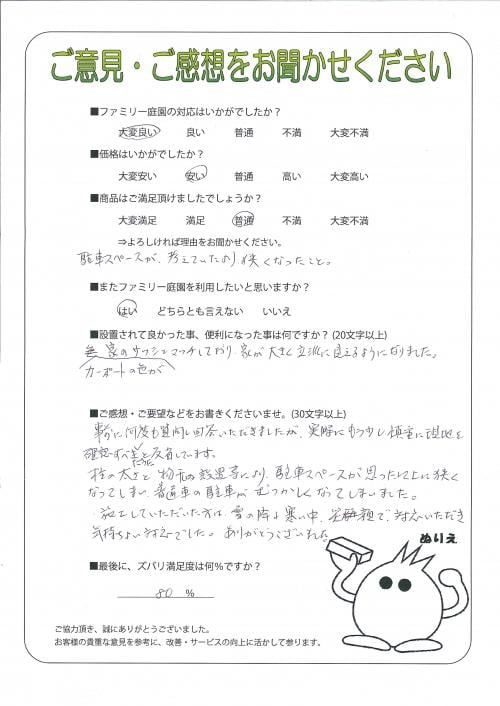 ご意見・ご感想をお聞かせください
■ファミリー庭園の対応はいかがでしたか？
大変良い 良い 普通 不満 大変不満
■価格はいかがでしたか？
大変安い 安い 普通 高い 大変高い
■商品はご満足頂けましたでしょうか？
大変満足 満足 普通 不満 大変不満
⇒よろしければ理由をお聞かせください。
駐車スペースが、考えていたより狭くなったこと。
■またファミリー庭園を利用したいと思いますか？
はい どちらとも言えない いいえ
■設置されて良かった事、便利になった事は何ですか？(20文字以上)
家のサッシとマッチしており、家が大きく立派に見えるようになりました。
カーポートの色が
■ご感想・ご要望などをお書きくださいませ。(30文字以上)
事前に何度も質問し回答いただきましたが、実際にもう少し慎重に現地を
確認すべきだったと反省しています。
柱の太さと物置の設置等により、駐車スペースが思った以上に狭く
なってしまい、普通車の駐車がむつかしくなってしまいました。
・施工していただいた方は、雪の降る寒い中、笑顔で、対応いただき
気持ちよい対応でした。ありがとうございました。
ぬりえ
■最後に、ズバリ満足度は何％ですか？
80 %
ご協力頂き、誠にありがとうございました。
お客様の貴重な意見を参考に、改善・サービスの向上に活かして参ります。